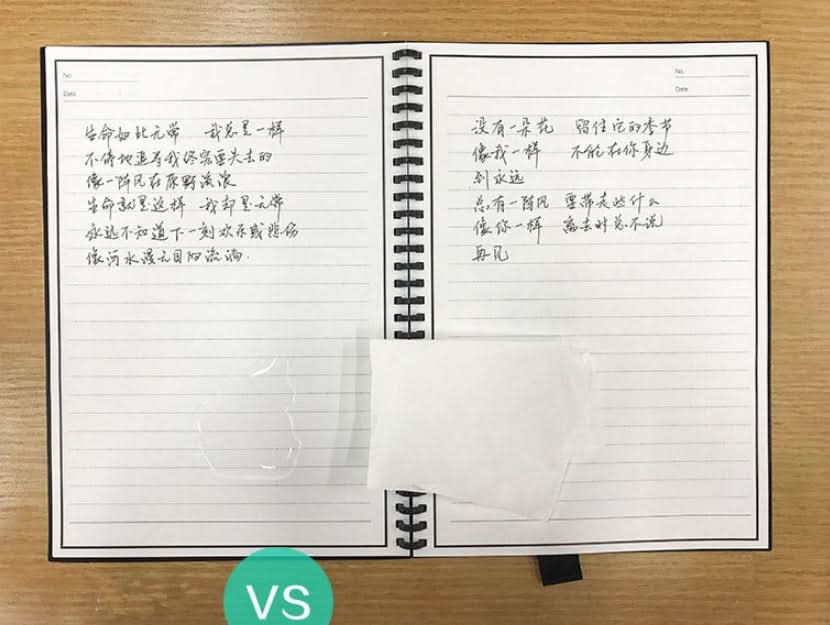 No.
Date
生命如此无常 我总是一样
不停地追寻我终究要失去的
像一阵风在原野流浪
生命就是这样 我却是无常
永远不知道下一刻欢乐或悲伤
像河水漫无目的流淌.
No.
Date
没有一朵花 留住它的季节
像我一样 不能在你身边
到永远
总有一阵风 要带走些什么
像你一样 离去时总不说
再见
VS